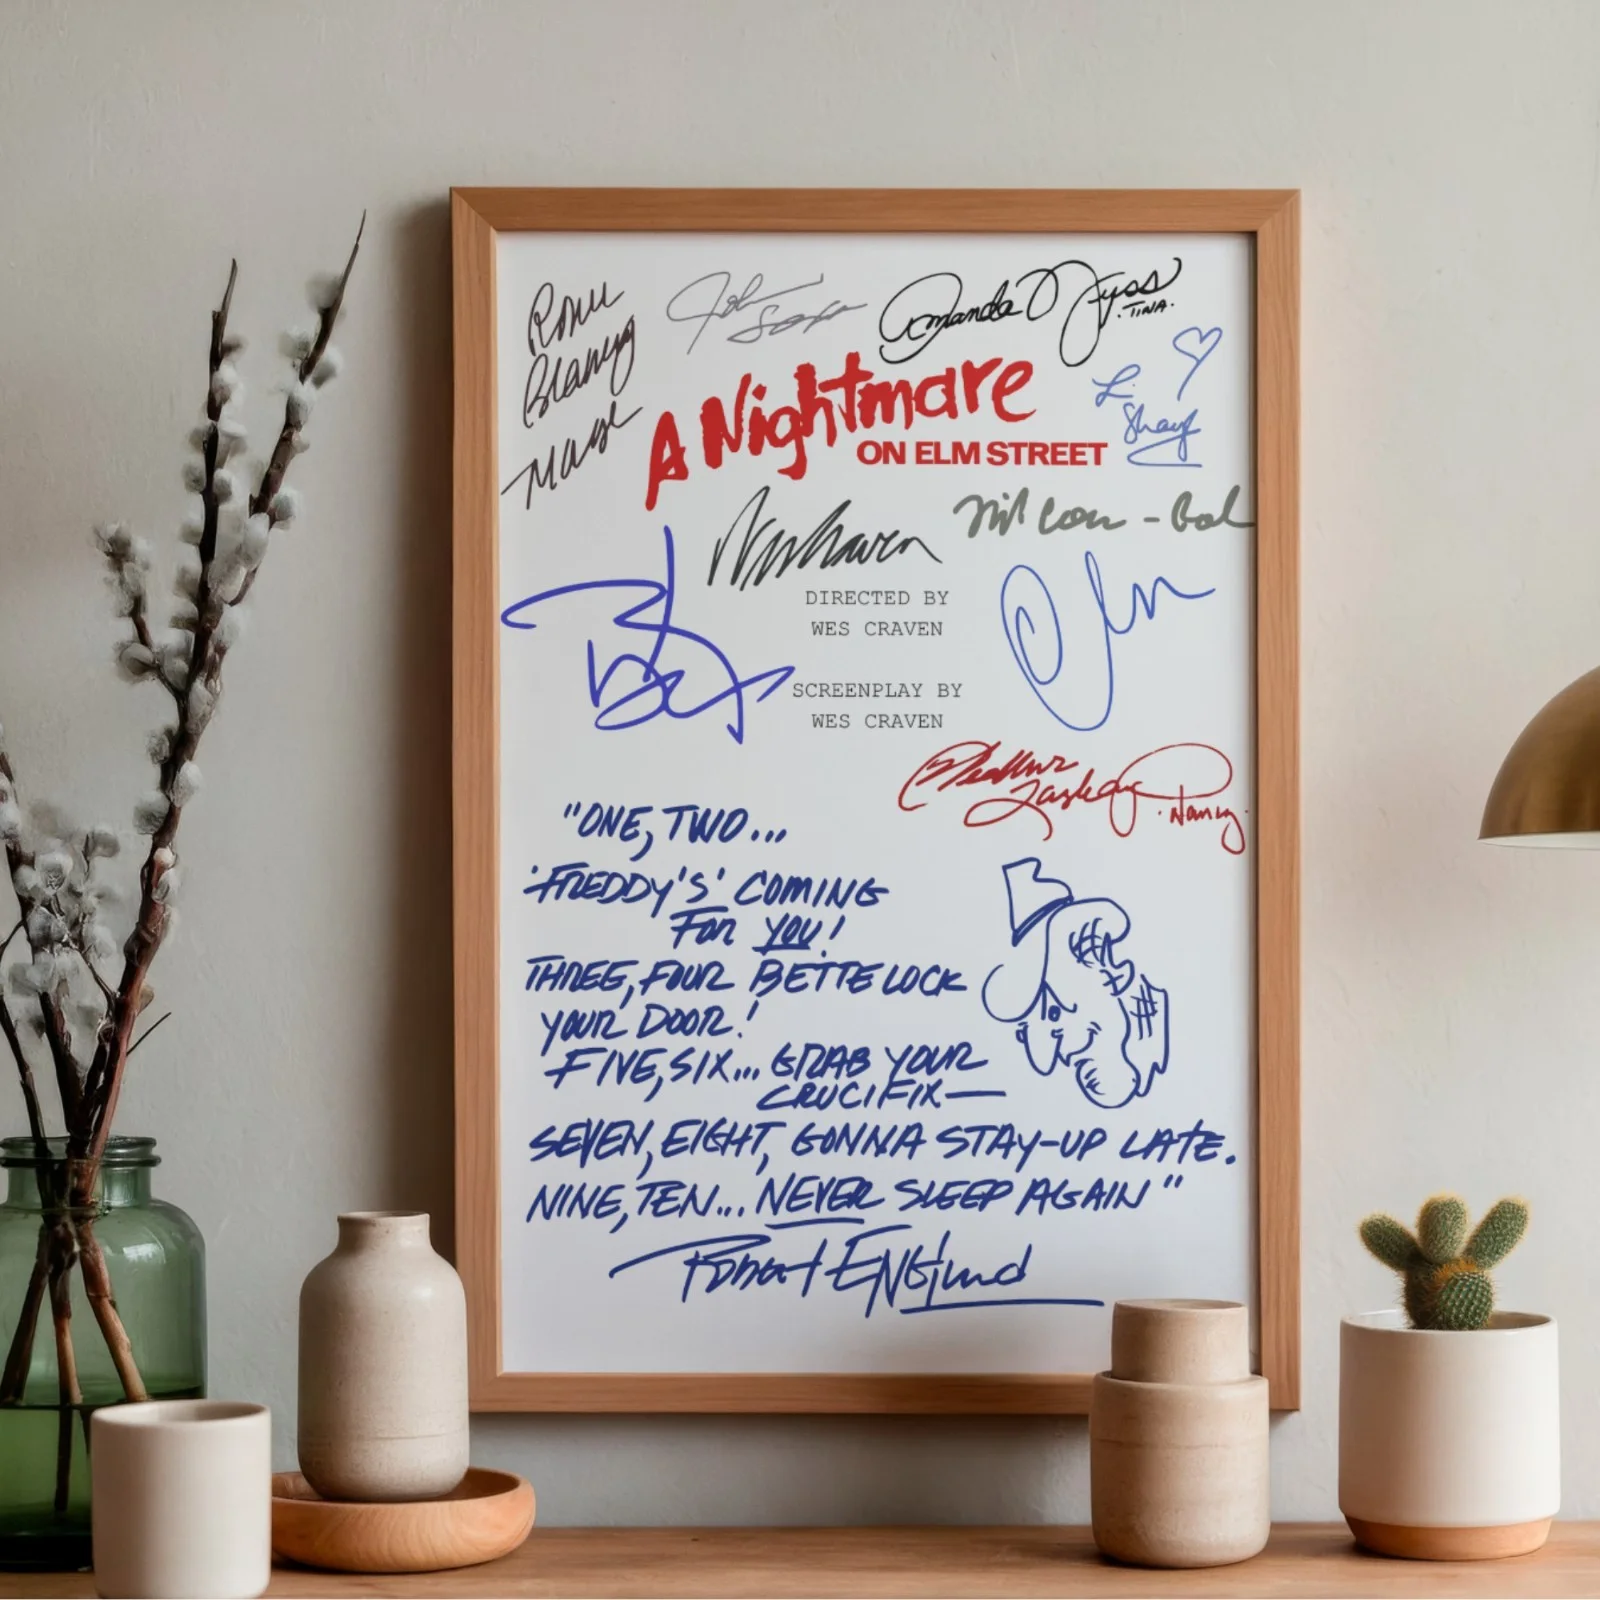 Ronee
Blakley
Marge
John
Saxon
Amanda Wyss
·TINA·
Lin
Shaye
A Nightmare
ON ELM STREET
Wes Craven
DIRECTED BY
WES CRAVEN
SCREENPLAY BY
WES CRAVEN
Heather
Langenkamp
·Nancy·
"ONE, TWO...
'FREDDY'S' COMING
FOR YOU!
THREE, FOUR BETTE LOCK
YOUR DOOR!
FIVE, SIX... GRAB YOUR
CRUCIFIX—
SEVEN, EIGHT, GONNA STAY-UP LATE.
NINE, TEN... NEVER SLEEP AGAIN"
Robert ENGlund